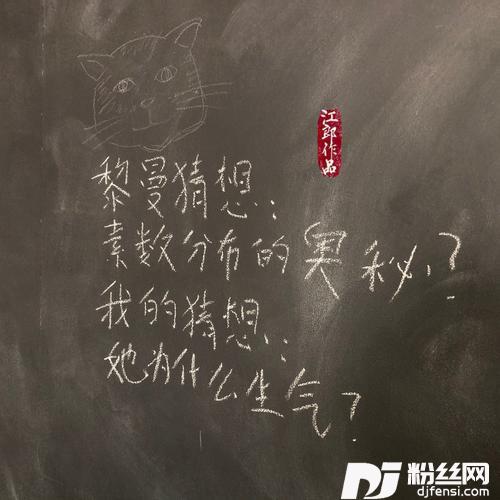 江郎作品
黎曼猜想:
素数分布的奥秘、?
我的猜想:
她为什么生气?
DJ粉丝网
djfensi.com